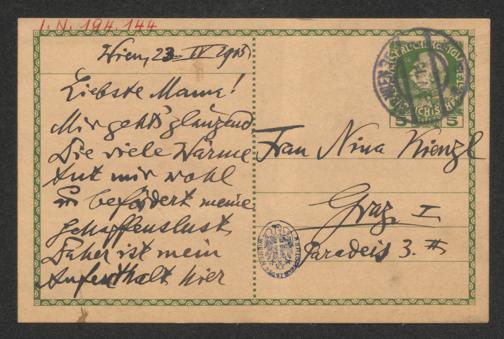 I. N. 194.144
Wien, 23 IV 1915
Liebste Mama!
Mir gehts glänzend
Die viele Wärme
tut mir wohl
befördert meine
Schaffenslust
Daher ist mein
Aufenthalt hier
Frau Nina Kienzl
Graz I
Paradeis 3. II
5 5